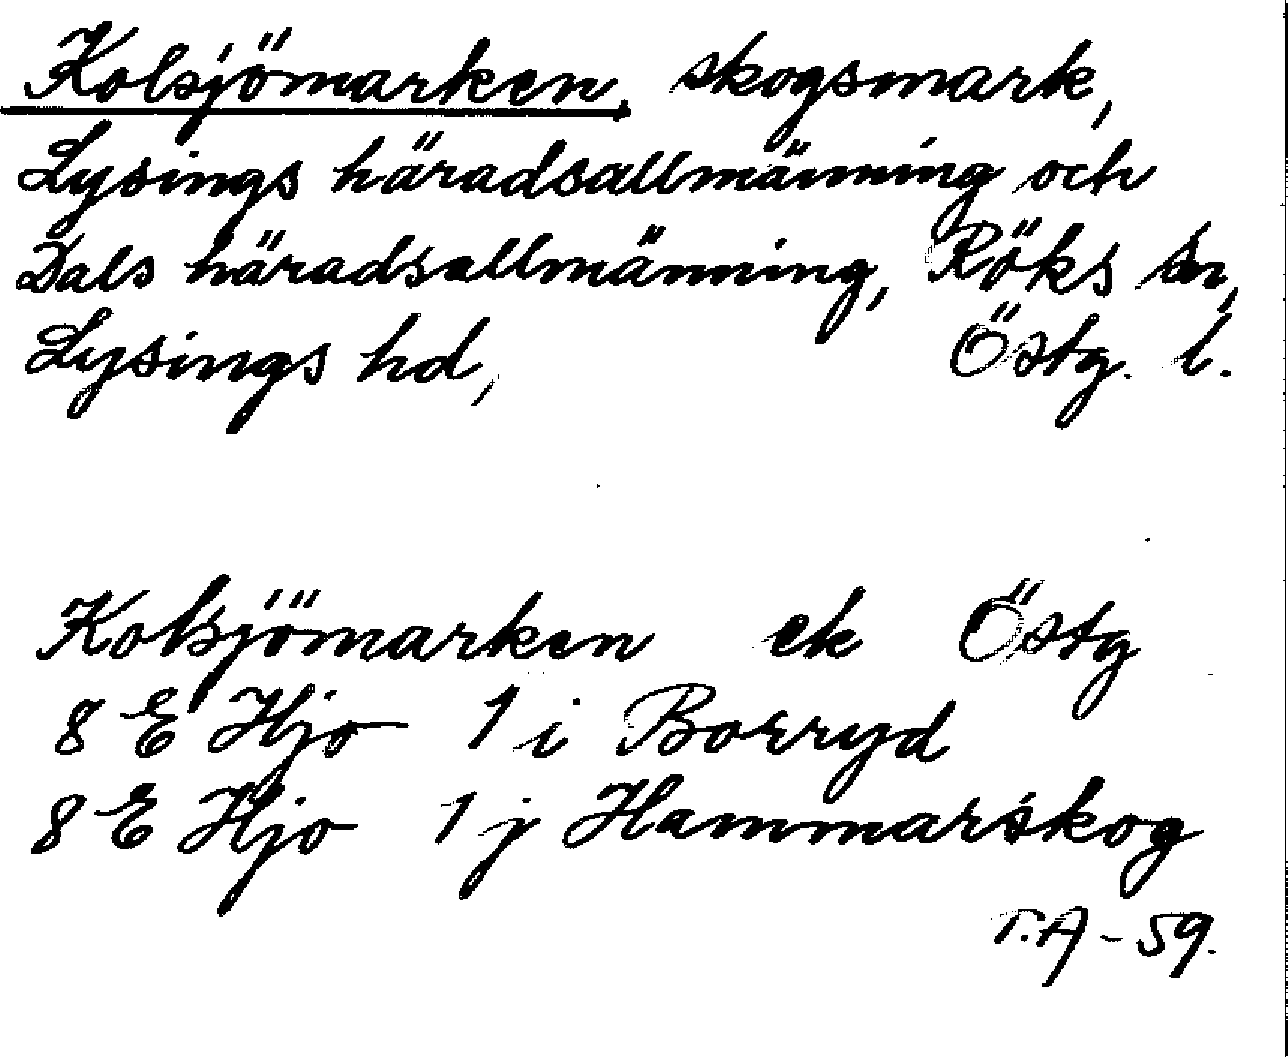 Kolsjömarken, skogsmark,
Lysings häradsallmänning och
Dals häradsallmänning, Röks sn,
Lysings hd, Östg. l.
Kolsjömarken ek Östg
8 E Hjo 1 i Borryd
8 E Hjo 1 j Hammarskog
T.A - 59.